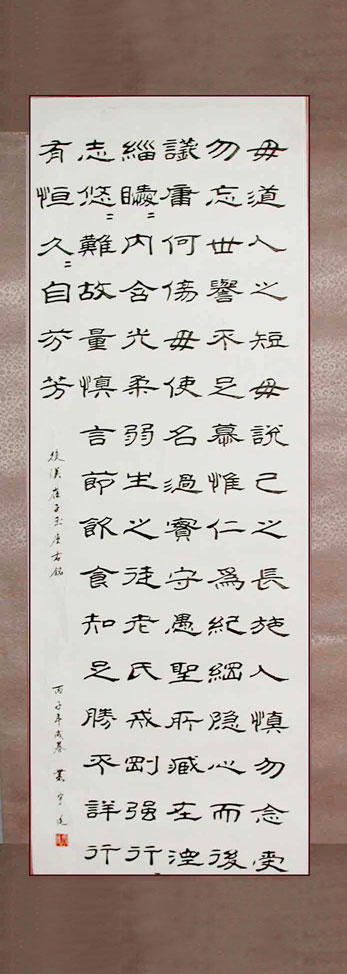 毋道人之短毋說己之長施人慎勿念受
勿忘世譽不足慕惟仁爲紀綱隐心而後
議庸何傷毋使名過實守愚聖所藏在涅
緇曖〻內含光柔弱生之徒老氏戒剛强行
志悠〻難故量慎言節飲食知足勝不詳行
有恒久〻自芬芳
後漢崔子玉座右銘
丙子年歲暮